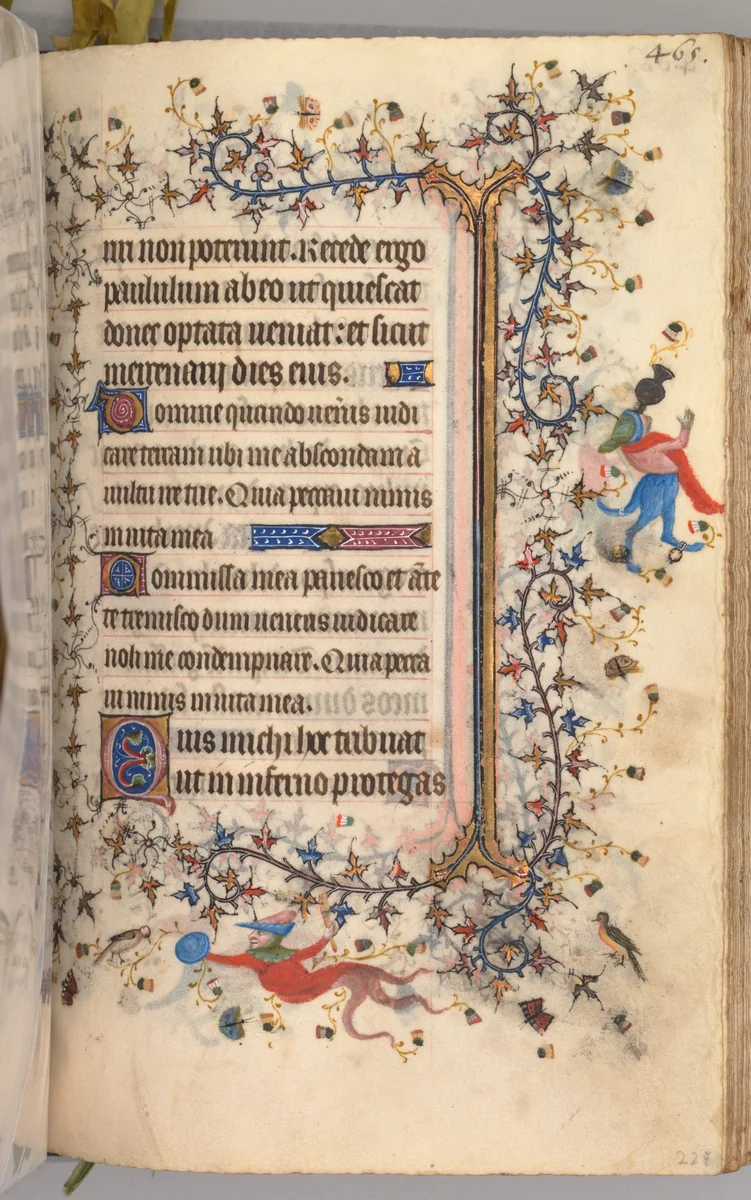 465.
riri non poterunt. Recede ergo
paululum ab eo ut quiescat
donec optata ueniat: et sicut
mercenarij dies eius.
Domine quando ueneris iudi
care terram ubi me abscondam a
uultu ire tue. Quia peccaui nimis
in uita mea
Commissa mea pauesco et ante
te eremisco dum ueneris iudicare
noli me condempnare. Quia pecca
ui nimis in uita mea.
Quis michi hoc tribuat
ut in inferno protegas